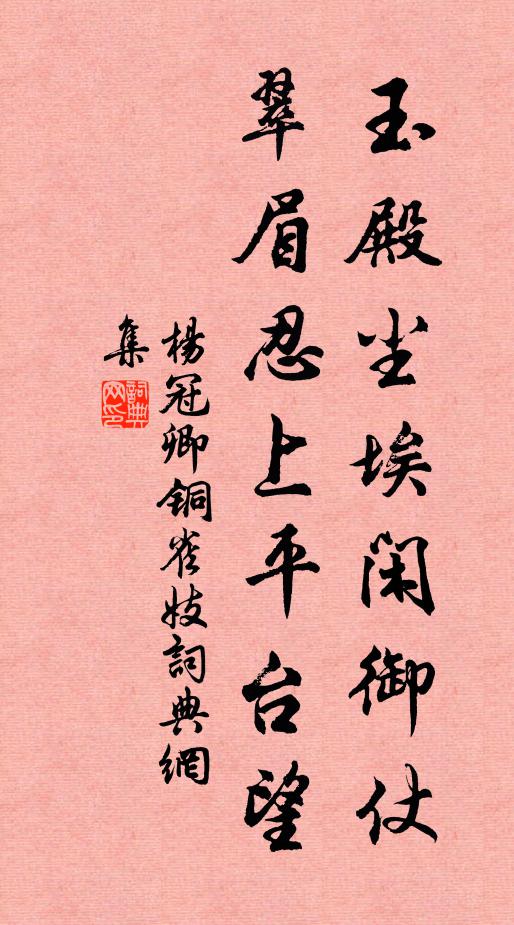 玉殿尘埃闲御仗
翠眉忍上平台望
楊冠卿铜雀妓詞典網
集
詞典网印